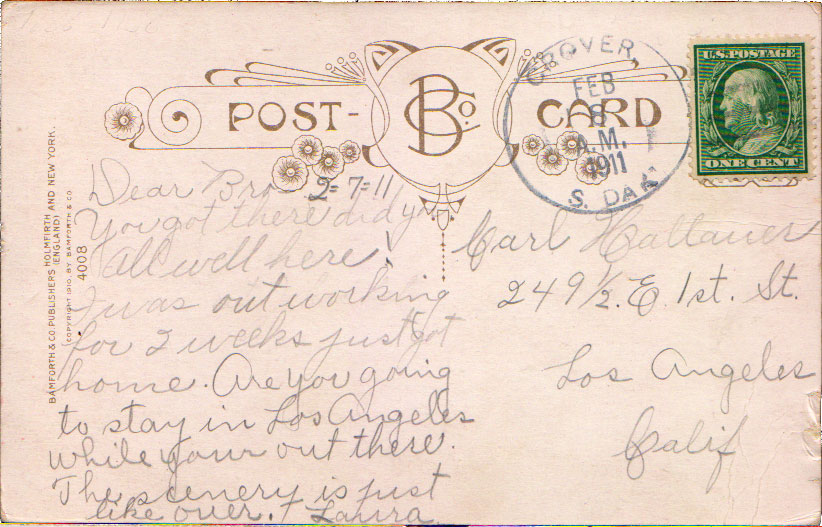 POST-CARD
B Co.
GROVER
FEB
8
A.M.
1911
S. DAK
U.S. POSTAGE
ONE CENT
BAMFORTH & CO. PUBLISHERS HOLMFIRTH AND NEW YORK.
(ENGLAND)
(COPYRIGHT 1910 BY BAMFORTH & CO.
4008
Dear Bro 2=7=11
You got there did y
all well here!
I was out working
for 2 weeks just got
home. Are you going
to stay in Los Angeles
while your out there.
The scenery is just
like over. Laura
Carl
249 1/2. E. 1st. St.
Los Angeles
Calif